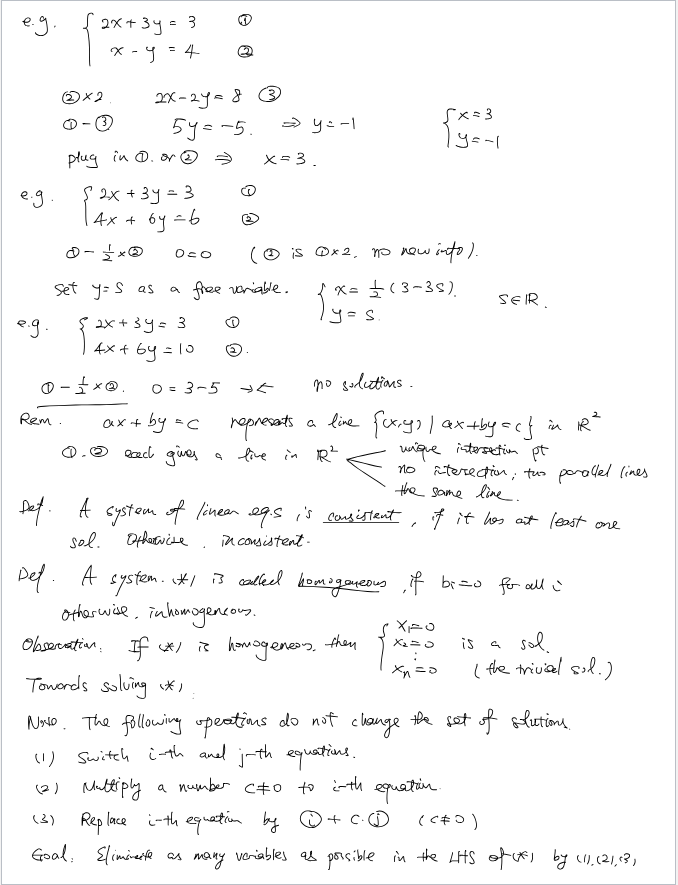 e.g. { 2x + 3y = 3 ①
x - y = 4 ②
②×2. 2x-2y = 8 ③
①-③ 5y = -5. ⇒ y = -1 { x = 3
plug in ①. or ② ⇒ x = 3. y = -1
e.g. { 2x + 3y = 3 ①
4x + 6y = 6 ②
① - 1/2 × ② 0=0 (② is ①×2, no new info).
Set y=s as a free variable. { x = 1/2 (3-3s). s∈ℝ.
y = s.
e.g. { 2x + 3y = 3 ①
4x + 6y = 10 ②.
① - 1/2 × ②. 0 = 3-5 →← no solutions.
Rem. ax + by = c represents a line {(x,y) | ax+by=c} in ℝ²
①.② each gives a line in ℝ² unique intersection pt
no interection; two parallel lines
the same line.
Def. A system of linear eq.s is consistent, if it has at least one
sol. Otherwise, inconsistent.
Def. A system (*) is called homogeneous, if bi=0 for all i
otherwise, inhomogeneous.
Observation. If (*) is homogeneous, then { x₁=0
x₂=0 is a sol.
⋮
xₙ=0 (the trivial sol.)
Towards solving (*).
Note. The following operations do not change the set of solutions.
(1) Switch i-th and j-th equations.
(2) Multiply a number c≠0 to i-th equation.
(3) Replace i-th equation by ⓘ + c·ⓙ (c≠0)
Goal. Eliminate as many variables as possible in the LHS of (*) by (1),(2),(3),